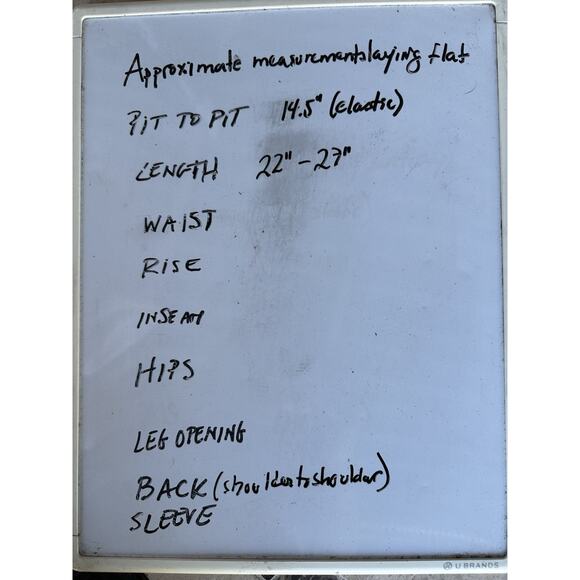 Approximate measurements laying flat
PIT TO PIT 14.5" (elastic)
LENGTH 22" - 27"
WAIST
RISE
INSEAM
HIPS
LEG OPENING
BACK (shoulder to shoulder)
SLEEVE
U BRANDS